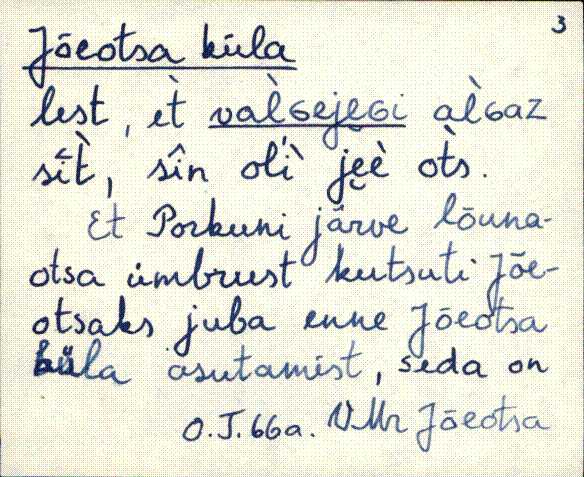 3
Jõeotsa küla
lest, èt̀ val̀ɢejeɢi al̀ɢaz
sît̀, sîn oĺì jẹè òts.
Et Porkuni järve lõuna-
otsa ümbrust kutsuti Jõe-
otsaks juba enne Jõeotsa
küla asutamist, seda on
O.J. 66a. VMr Jõeotsa